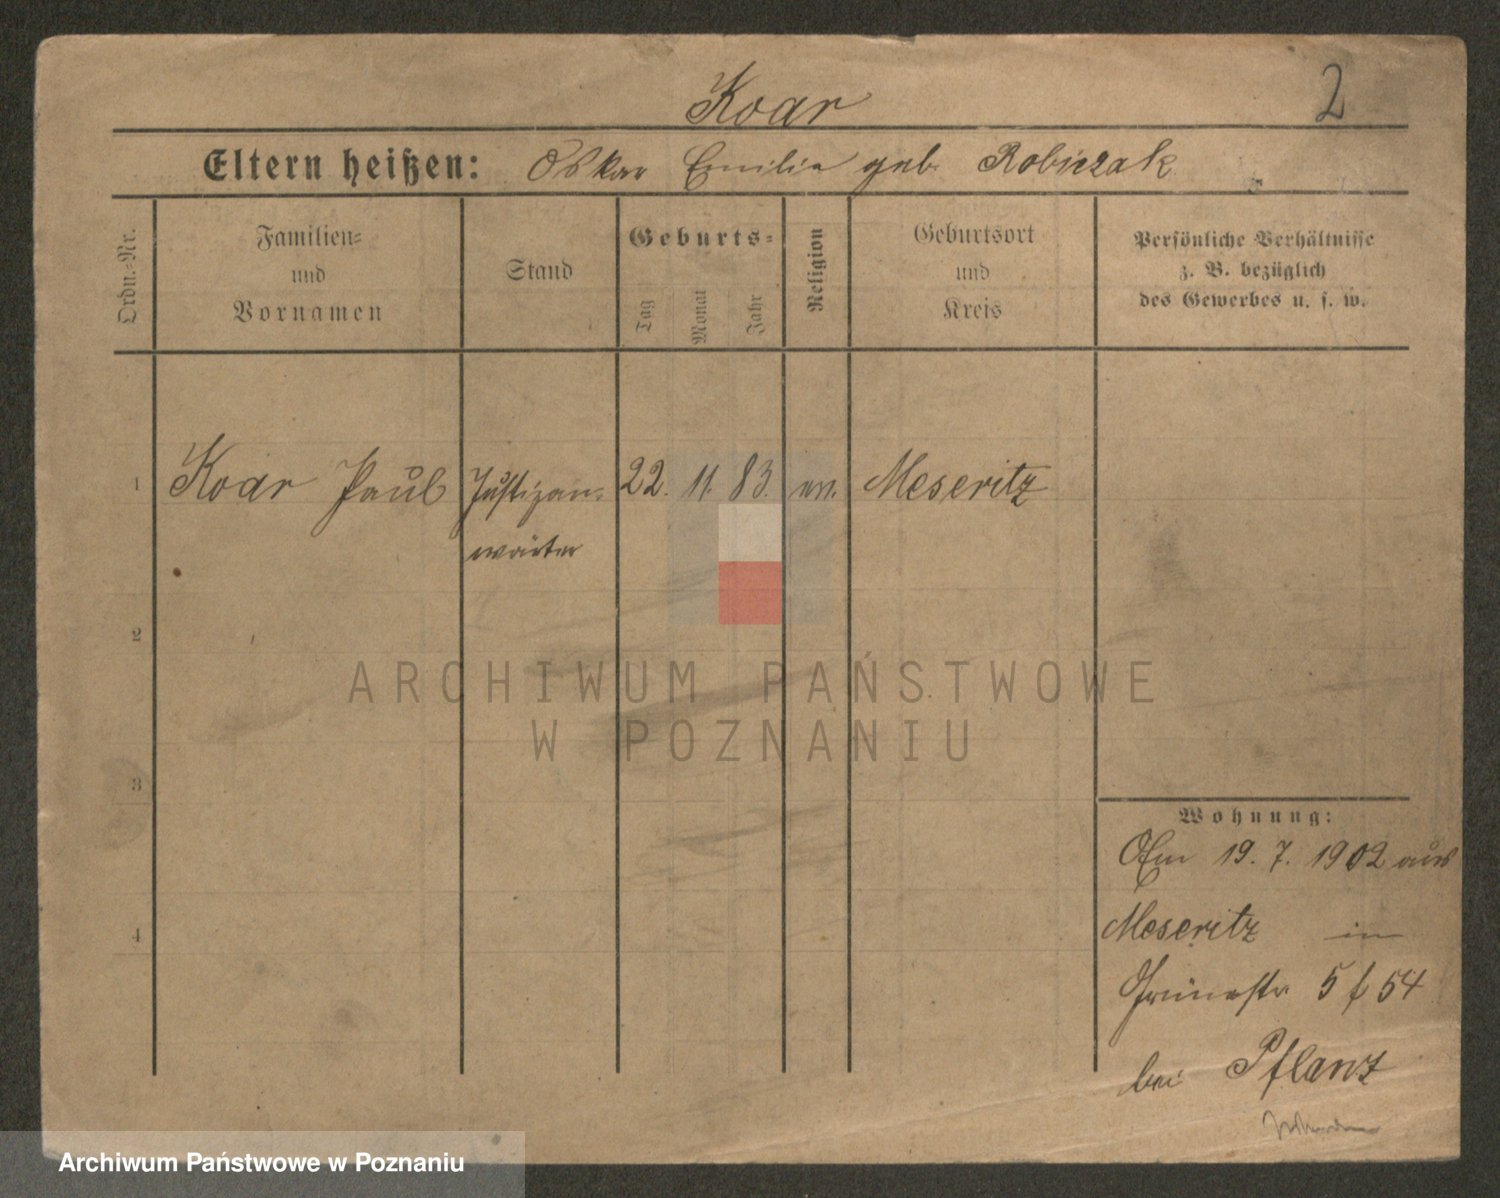 Koar
2
Eltern heißen: Oskar Emilie geb. Robiczak
Ordn.-Nr.
Familien-
und
Vornamen
Stand
Geburts-
Tag
Monat
Jahr
Religion
Geburtsort
und
Kreis
Persönliche Verhältnisse
z. B. bezüglich
des Gewerbes u. s. w.
1 Koar Paul Justizan- 22. 11. 83. ev. Meseritz
wärter
2
3
4
Wohnung:
Am 19. 7. 1902 aus
Meseritz in
Grünestr 5 f 54
bei Pflanz
ARCHIWUM PAŃSTWOWE
W POZNANIU
Archiwum Państwowe w Poznaniu